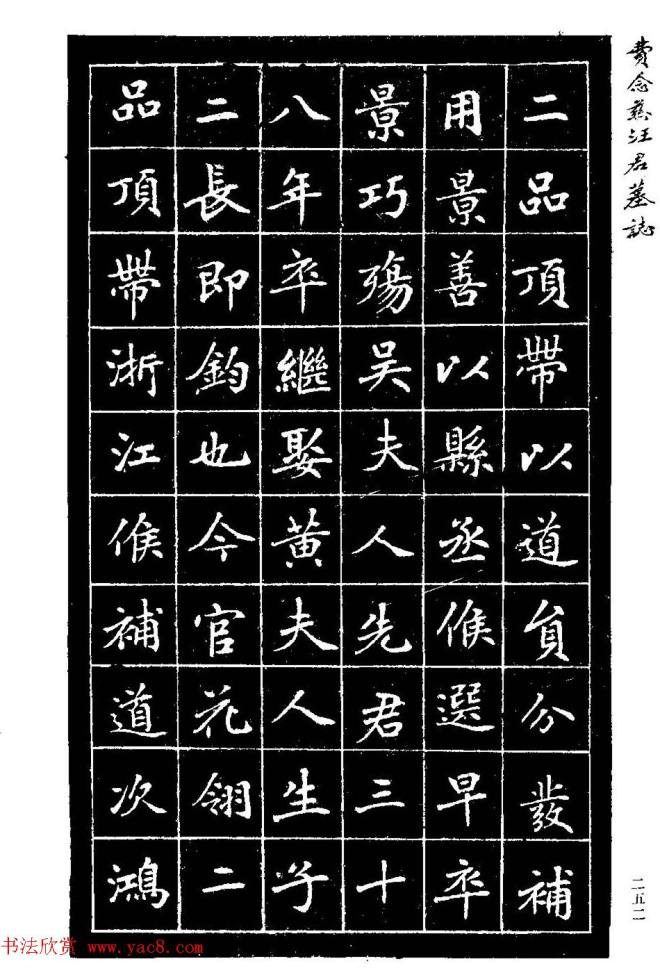 費念慈汪君墓誌
二品頂帶以道員分發補
用景善以縣丞候選早卒
景巧殤吴夫人先君三十
八年卒繼娶黃夫人生子
二長即鈞也今官花翎二
品頂帶浙江候補道次鴻
二五二
书法欣赏 www.yac8.com